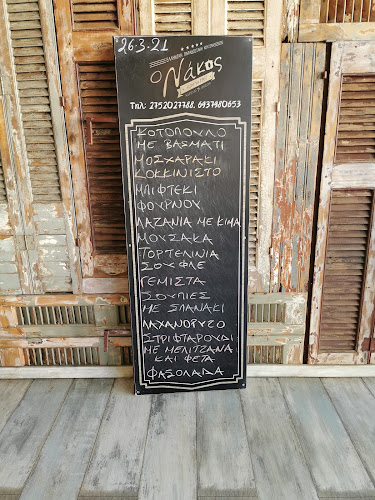 26-3-21
Ο Νάκος
Τηλ: 2752027788, 6937480653
ΚΟΤΟΠΟΥΛΟ
ΜΕ ΒΑΣΜΑΤΙ
ΜΟΣΧΑΡΑΚΙ
ΚΟΚΚΙΝΙΣΤΟ
ΜΠΙΦΤΕΚΙ
ΦΟΥΡΝΟΥ
ΛΑΖΑΝΙΑ ΜΕ ΚΙΜΑ
ΜΟΥΣΑΚΑ
ΤΟΡΤΕΛΙΝΙΑ
ΣΟΥΦΛΕ
ΓΕΜΙΣΤΑ
ΣΟΥΠΙΕΣ
ΜΕ ΣΠΑΝΑΚΙ
ΛΑΧΑΝΟΡΥΖΟ
ΣΤΡΙΦΤΑΡΟΥΔΙ
ΜΕ ΜΕΛΙΤΖΑΝΑ
ΚΑΙ ΦΕΤΑ
ΦΑΣΟΛΑΔΑ